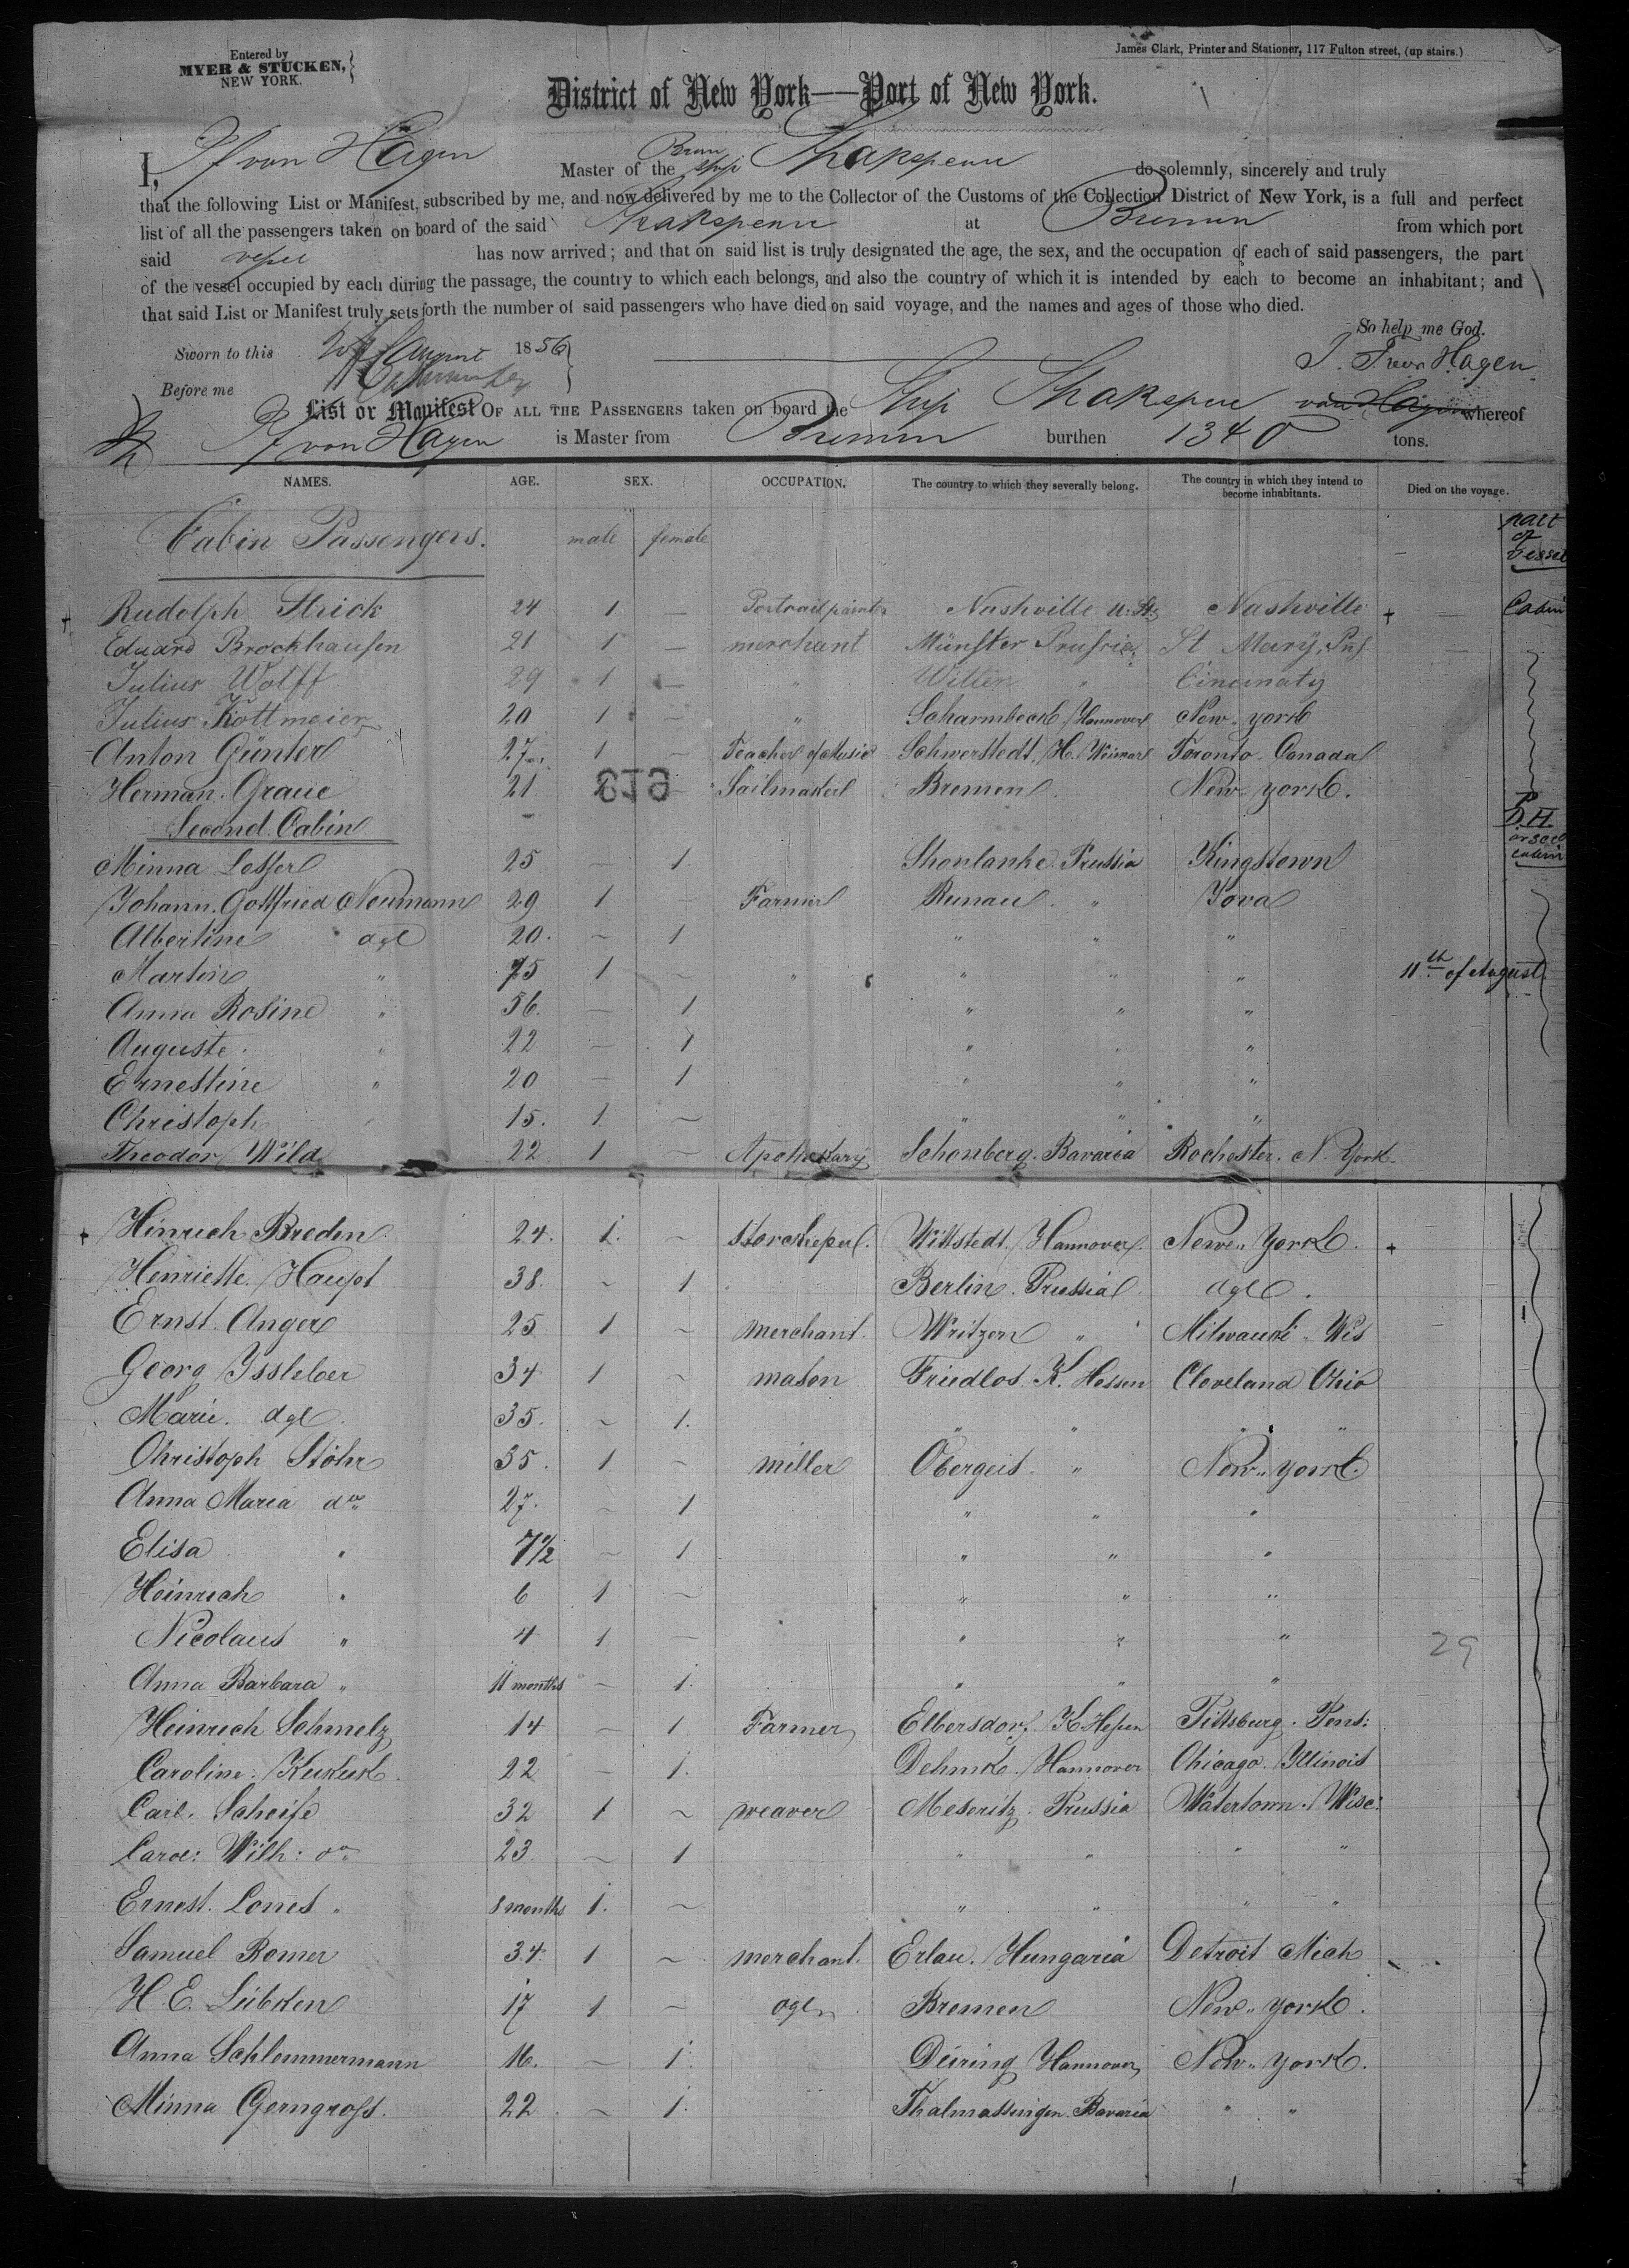 Entered by
MYER & STUCKEN,
NEW YORK.
James Clark, Printer and Stationer, 117 Fulton street, (up stairs.)
District of New York—Port of New York.
I, von Hagen Master of the Brem Ship Shakspeare do solemnly, sincerely and truly
that the following List or Manifest, subscribed by me, and now delivered by me to the Collector of the Customs of the Collection District of New York, is a full and perfect
list of all the passengers taken on board of the said Shakspeare at Bremen from which port
said vessel has now arrived; and that on said list is truly designated the age, the sex, and the occupation of each of said passengers, the part
of the vessel occupied by each during the passage, the country to which each belongs, and also the country of which it is intended by each to become an inhabitant; and
that said List or Manifest truly sets forth the number of said passengers who have died on said voyage, and the names and ages of those who died.
So help me God.
Sworn to this August 1856
von Hagen
Before me
List or Manifest OF ALL THE PASSENGERS taken on board the Ship Shakspeare von Hagen whereof
von Hagen is Master from Bremen burthen 1340 tons.
NAMES. AGE. SEX. OCCUPATION. The country to which they severally belong. The country in which they intend to become inhabitants. Died on the voyage.
part of vessel
Cabin Passengers. male female
Rudolph Strick 24 1 — Portraitpainter Nashville U. Sts Nashville + — Cabin
Eduard Brockhausen 21 1 — merchant Münster Prussia St Mary,
Julius Wolff 29 1 — " Witten " Cincinaty
Julius Kottmeier 20 1 — " Scharmbeck Hannover New-york
Anton Günter 27 1 — Teacher of Music Schwerstedt. H. Weimar Toronto Canada
Herman. Graue 21 — Sailmaker Bremen New-york.
Second Cabin
Minna Lesser 25 — 1. Shonlanke. Prussia Kingstown
Johann. Gottfried Neumann 29 1 — Farmer Runau. " Iova
Albertine dgl 20. ~ 1 " " "
Martin " 75 1 ~ " " " " 11th of August
Anna Rosine " 56. — 1 " " "
Auguste. " 22 — 1 " " "
Ernestine " 20 — 1 " " "
Christoph " 15. 1 ~ " " "
Theodor Wild 22 1 ~ Apothekary Schönberg. Bavaria Rochester. N. York.
+ Hinrich Breden 24. 1. ~ storekieper. Wittstedt. Hannover. Newe-York. +
Henriette. Haupt 38. ~ 1 Berlin. Prussia dgl.
Ernst. Anger 25 1 ~ merchant. Writzen " Milwauki. Wis
Georg Yssleber 34 1 ~ mason Friedlos. K. Hessen Cleveland Ohio
Marie. dgl. 35. ~ 1. " " " "
Christoph Stöhr 35. 1 ~ miller Obergeis. " New-york.
Anna Maria do 27. ~ 1 " " "
Elisa " 7½ ~ 1 " " "
Heinrich " 6 1 ~ " " "
Nicolaus " 4 1 — " " "
29
Anna Barbara " 11 months — 1. " " "
Heinrich Schmelz 14 — 1 Farmer Elbersdorf. K Hessen Pittsburg. Pens:
Caroline. Kukuk. 22 — 1. Dehmk. Hannover Chicago. Illinois
Carl. Scheife 32 1 ~ weaver Meseritz. Prussia Watertown. Wisc:
Carol: Wilh: do 23 ~ 1 " " " "
Ernest. Lones " 8 months 1. ~ " " " "
Samuel Romer 34. 1 ~ merchant. Erlau. Hungaria Detroit Mich
H. E. Lübken 17 1 — dgl. Bremen New-york.
Anna Schlemmermann 16. — 1. Hannover New-york.
Minna Gerngross. 22 ~ 1. Thalmassingen. Bavaria " "